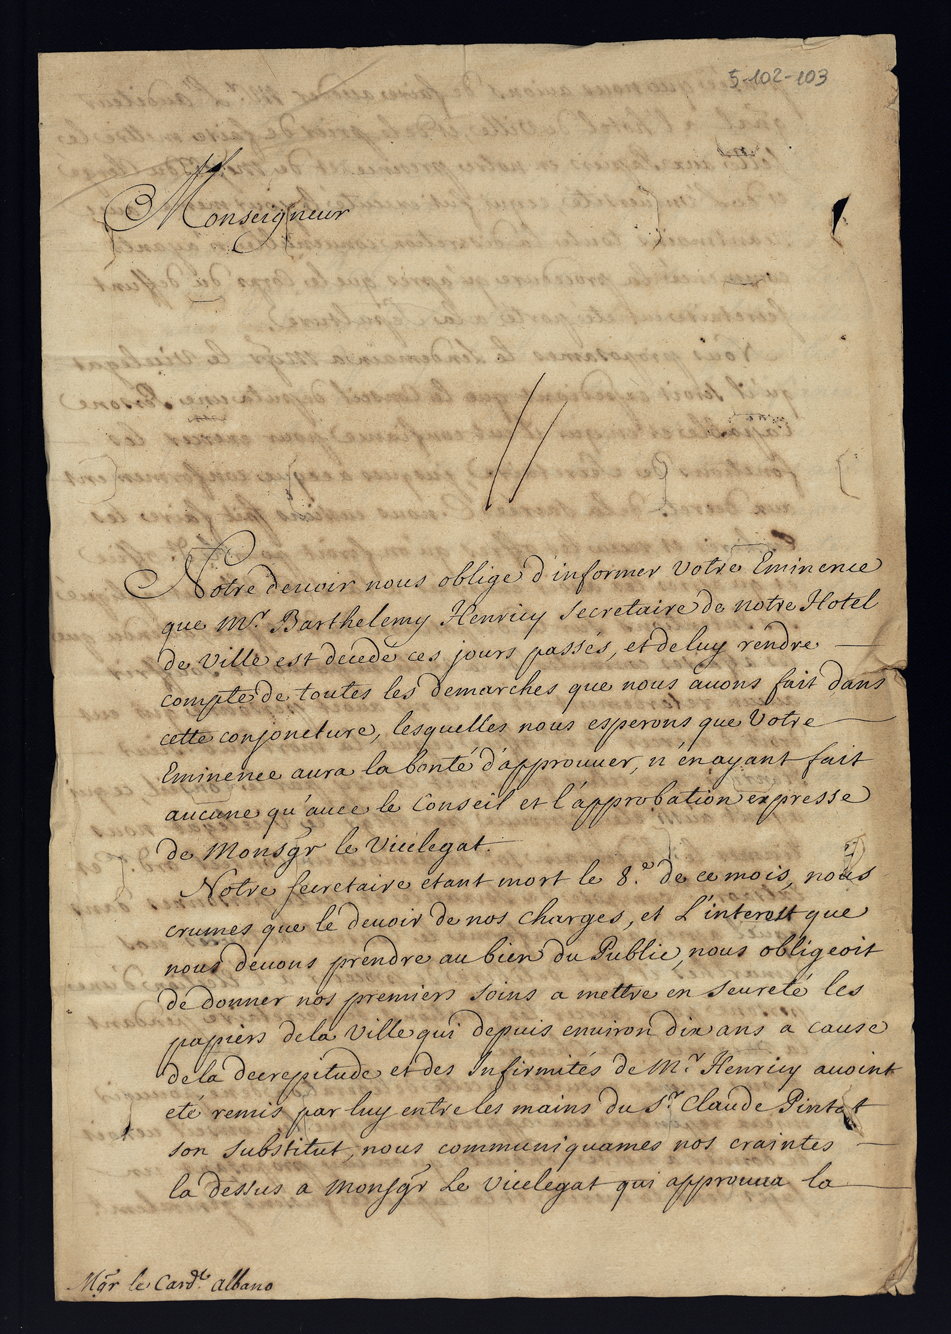 5-102-103
Monseigneur
Notre devoir nous oblige d'informer Votre Eminence
que Mr. Barthelemy Henricy secretaire de notre Hotel
de Ville est decedé ces jours passés, et de luy rendre
compte de toutes les demarches que nous avons fait dans
cette conjoncture, lesquelles nous esperons que Votre
Eminence aura la bonté d'approuver, n'en ayant fait
aucune qu'avec le Conseil et l'approbation expresse
de Monsgr le Vicelegat.
Notre secretaire etant mort le 8.e de ce mois, nous
crumes que le devoir de nos charges, et L'interest que
nous devons prendre au bien du Public, nous obligeoit
de donner nos premiers soins a mettre en seureté les
papiers de la Ville qui depuis environ dix ans a cause
de la decrepitude et des Infirmités de Mr. Henricy avoint
eté remis par luy entre les mains du Sr. Claude Pintat
son substitut, nous communiquames nos craintes
la dessus a Monsgr Le Vicelegat qui approuva la
Mgr le Cardle. Albano